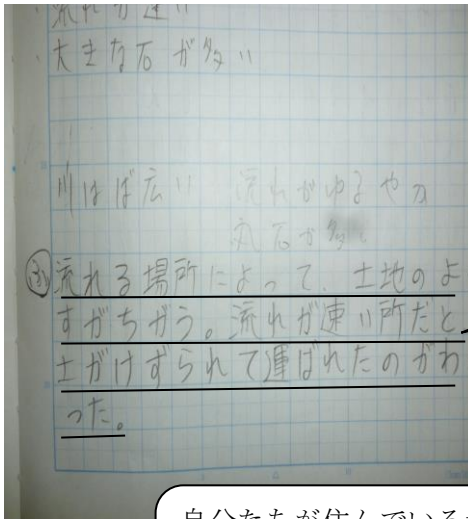 流れが速い
大きな石が多い
川はば広い 流れがゆるやか
丸石が多
ふ 流れる場所によって、土地のよ
すがちがう。流れが速い所だと、
土がけずられて運ばれたのがわ
った。
自分たちが住んでいる